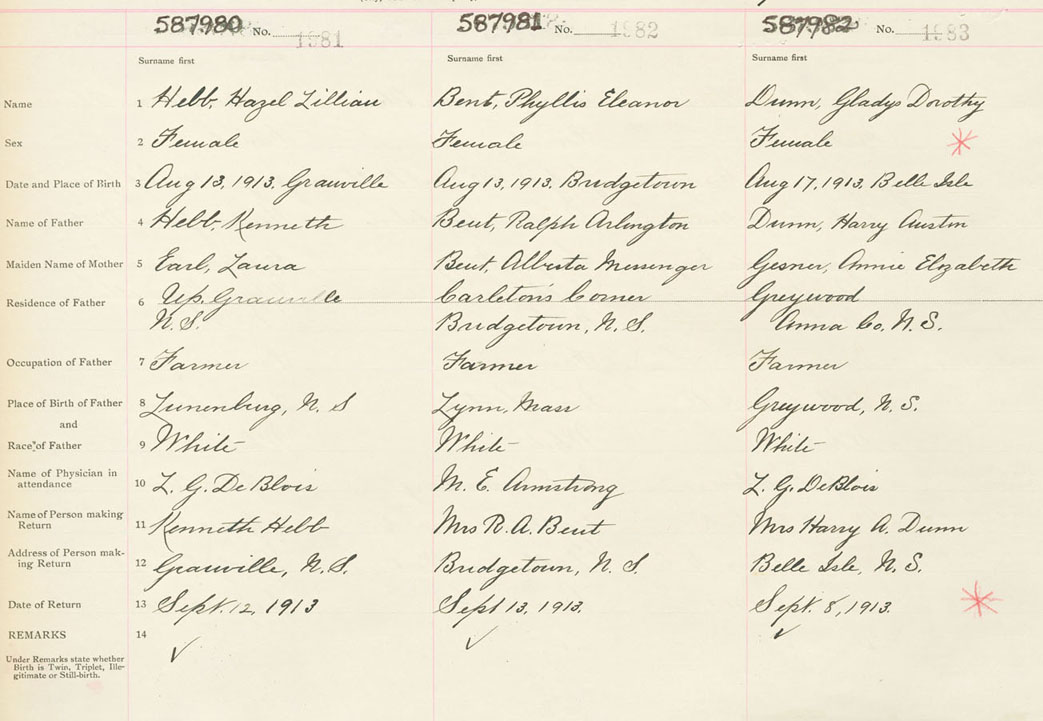 587980 No. 1981 587981 No. 1982 587982 No. 1983
Surname first Surname first Surname first
Name 1 Hebb, Hazel Lillian Bent, Phyllis Eleanor Dunn, Gladys Dorothy
Sex 2 Female Female Female
Date and Place of Birth 3 Aug 13, 1913. Granville Aug 13, 1913. Bridgetown Aug 17, 1913. Belle Isle
Name of Father 4 Hebb, Kenneth Bent, Ralph Arlington Dunn, Harry Austin
Maiden Name of Mother 5 Earl, Laura Bent, Alberta Messenger Gesner, Annie Elizabeth
Residence of Father 6 Up. Granville Carleton's Corner Greywood
N.S. Bridgetown, N.S. Anna Co, N.S.
Occupation of Father 7 Farmer Farmer Farmer
Place of Birth of Father 8 Lunenburg, N.S Lynn, Mass Greywood, N.S.
and
Race of Father 9 White White White
Name of Physician in
attendance 10 L. G. DeBlois M. E. Armstrong L. G. DeBlois
Name of Person making
Return 11 Kenneth Hebb Mrs R. A. Bent Mrs Harry A. Dunn
Address of Person mak-
ing Return 12 Granville, N.S. Bridgetown, N.S. Belle Isle, N.S.
Date of Return 13 Sept. 12, 1913 Sept 13, 1913. Sept. 8, 1913.
REMARKS 14
Under Remarks state whether
Birth is Twin, Triplet, Ille-
gitimate or Still-birth.